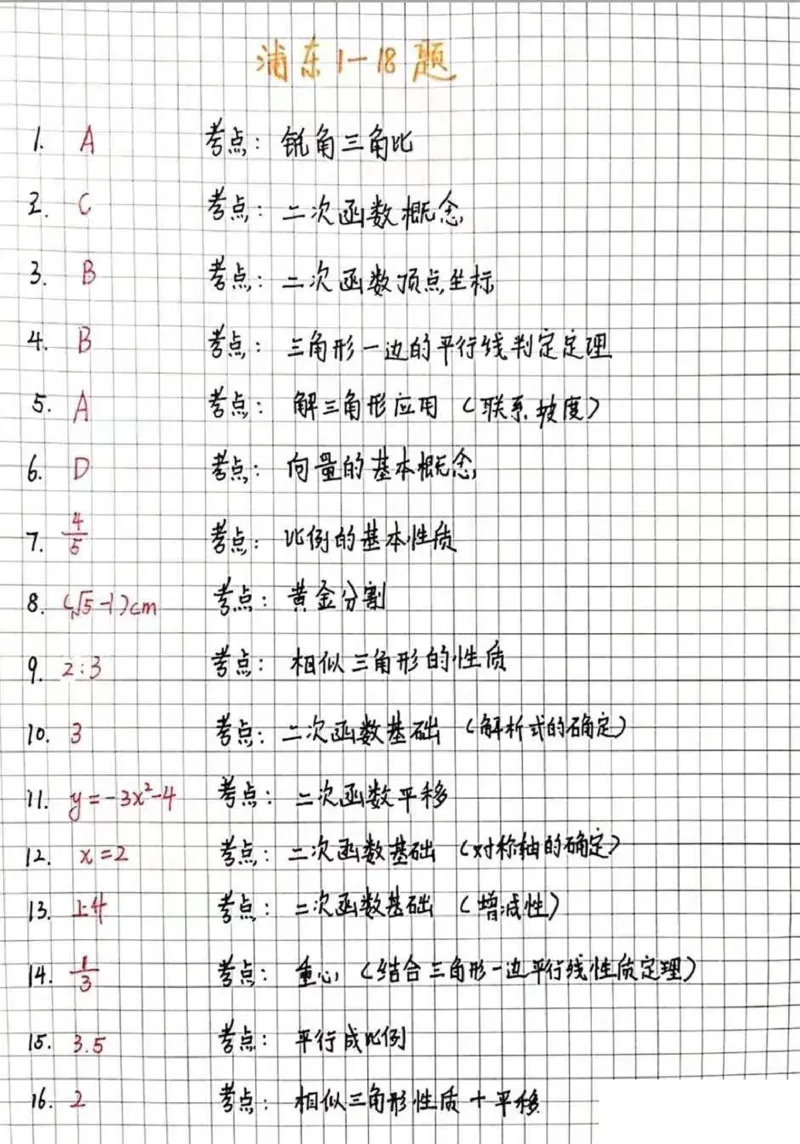 浦东1-18题
1. A 考点: 锐角三角比
2. C 考点: 二次函数概念
3. B 考点: 二次函数顶点坐标
4. B 考点: 三角形一边的平行线判定定理
5. A 考点: 解三角形应用(联系坡度)
6. D 考点: 向量的基本概念
7. 4/5 考点: 比例的基本性质
8. (√5-1)cm 考点: 黄金分割
9. 2:3 考点: 相似三角形的性质
10. 3 考点: 二次函数基础(解析式的确定)
11. y=-3x²-4 考点: 二次函数平移
12. x=2 考点: 二次函数基础(对称轴的确定)
13. 上升 考点: 二次函数基础(增减性)
14. 1/3 考点: 重心(结合三角形一边平行线性质定理)
15. 3.5 考点: 平行成比例
16. 2 考点: 相似三角形性质+平移